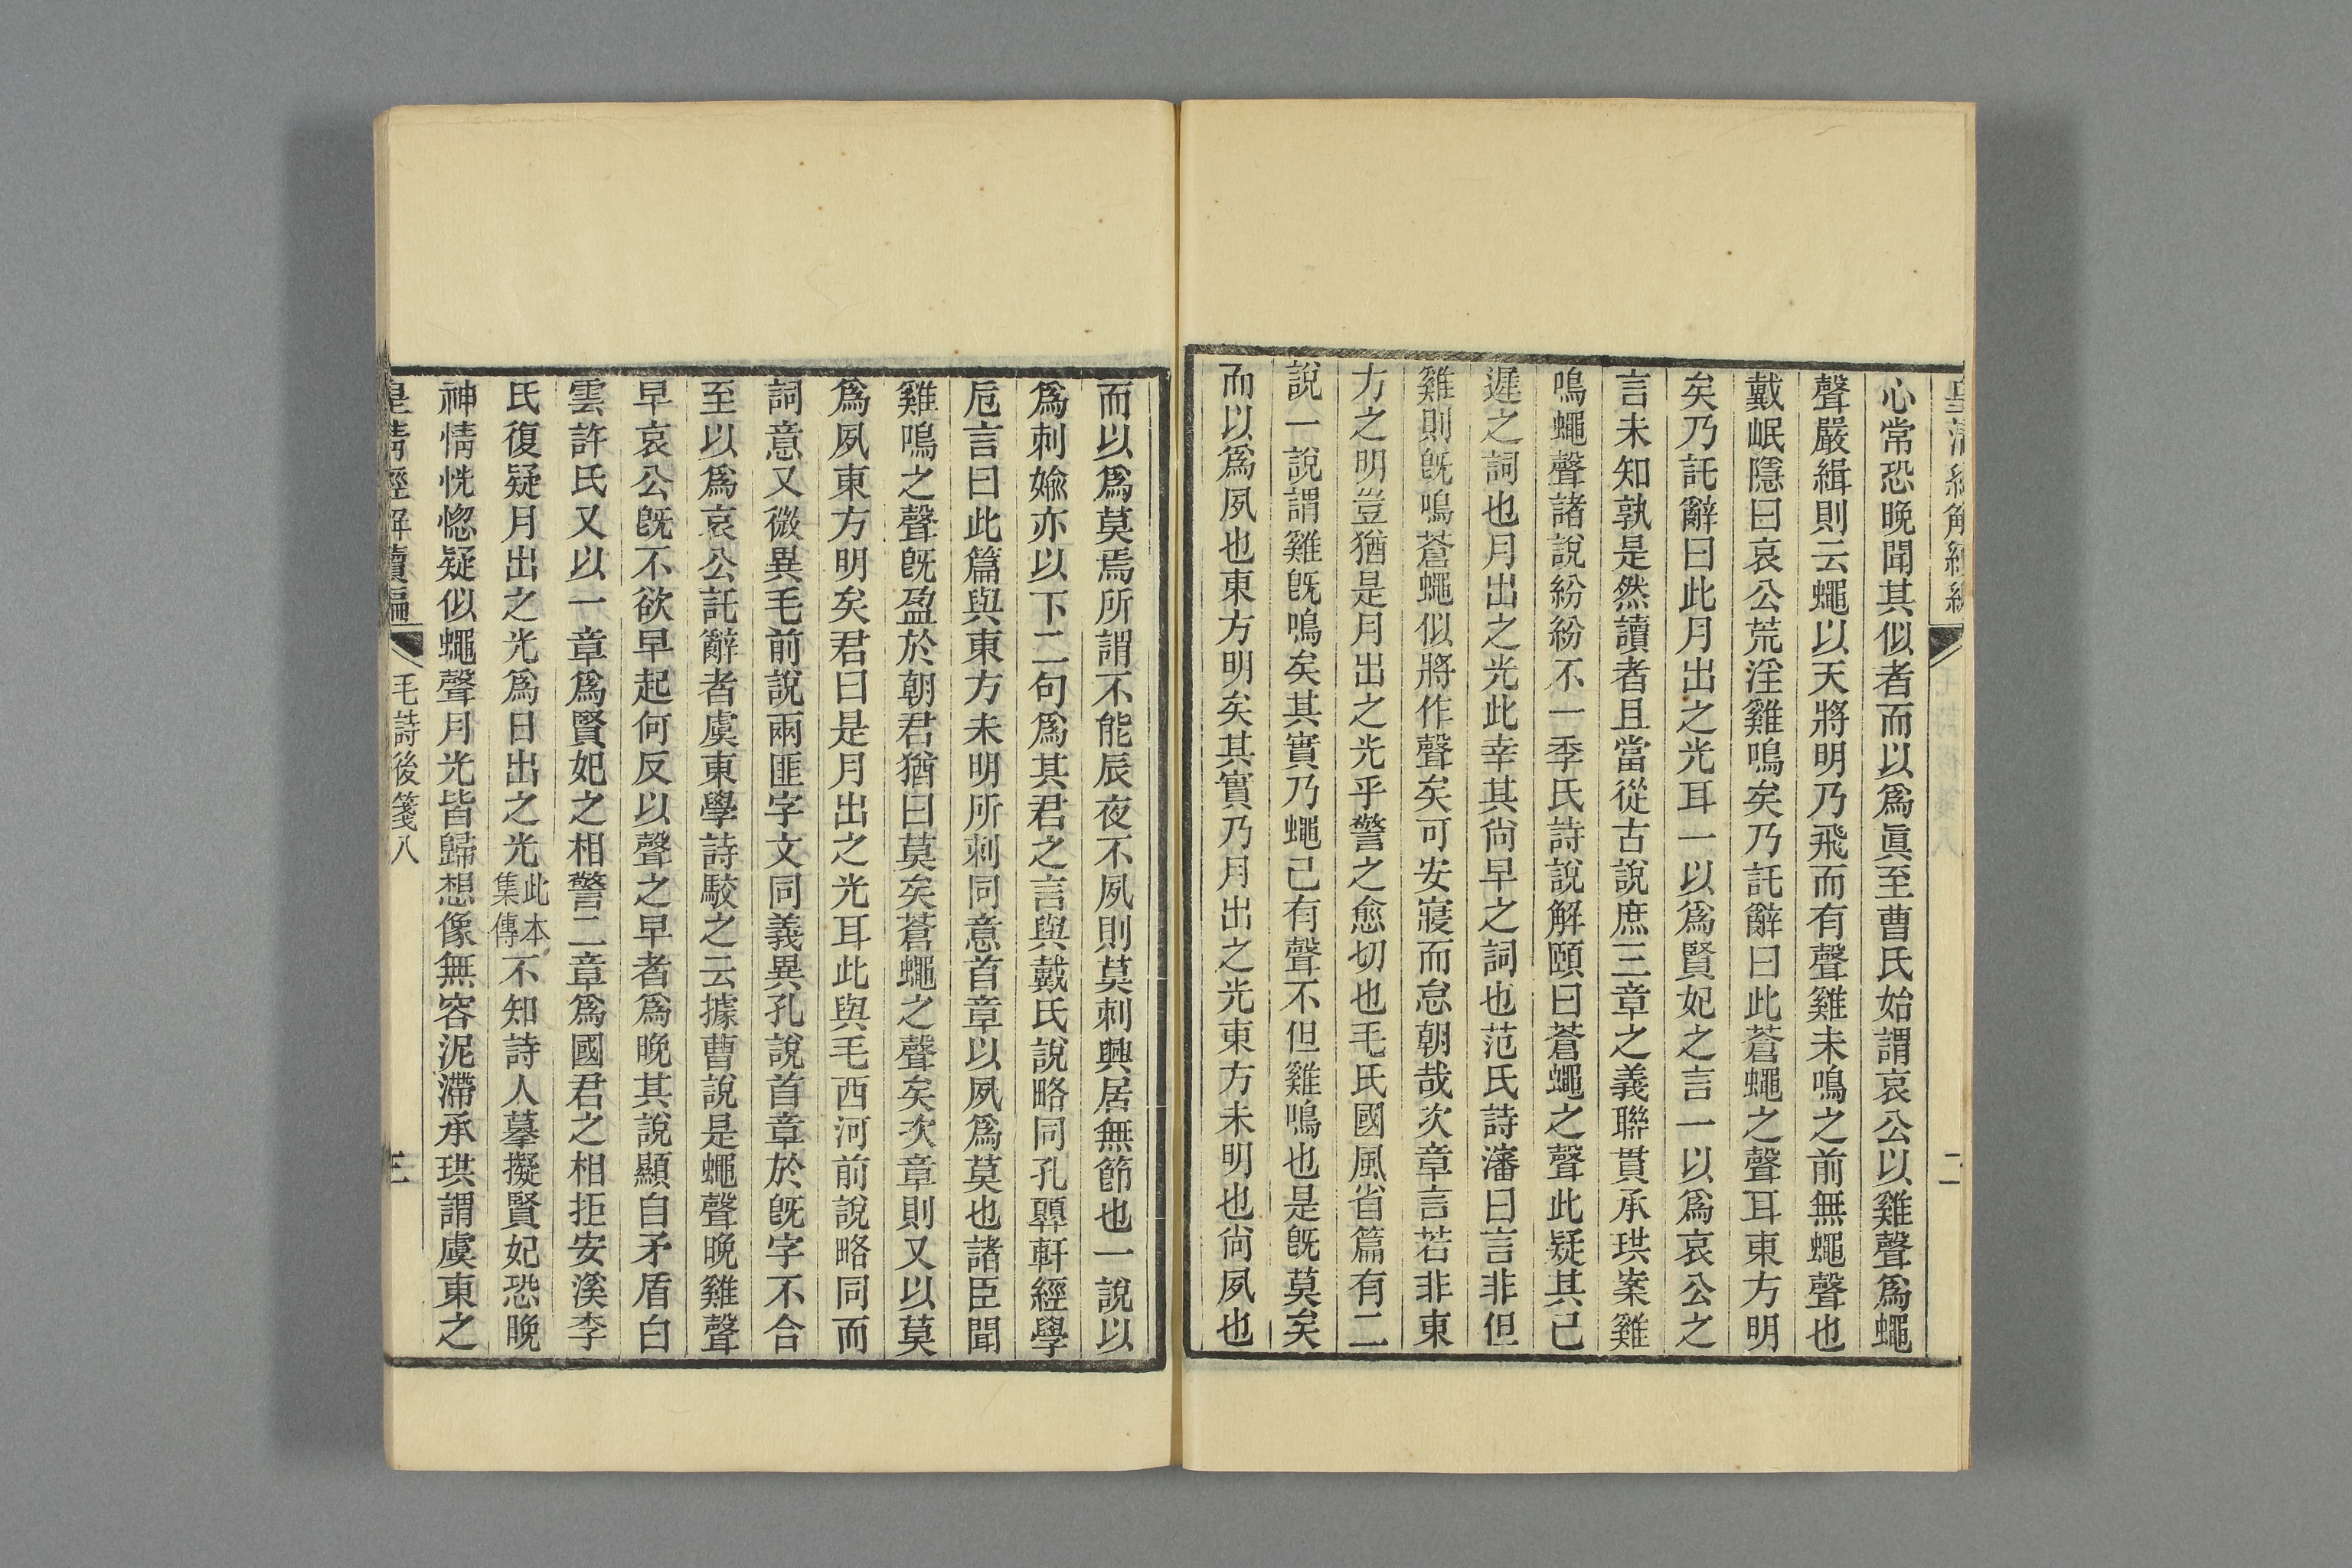 心常恐晚聞其似者而以爲眞至曹氏始謂哀公以雞聲爲蠅
聲嚴緝則云蠅以天將明乃飛而有聲雞未鳴之前無蠅聲也
戴岷隱曰哀公荒淫雞鳴矣乃託辭曰此蒼蠅之聲耳東方明
矣乃託辭曰此月出之光耳一以爲賢妃之言一以爲哀公之
言未知孰是然讀者且當從古說庶三章之義聯貫承珙案雞
鳴蠅聲諸說紛紛不一季氏詩說解頤曰蒼蠅之聲此疑其已
遲之詞也月出之光此幸其尙早之詞也范氏詩瀋曰言非但
雞則旣鳴蒼蠅似將作聲矣可安寢而怠朝哉次章言若非東
方之明豈猶是月出之光乎警之愈切也毛氏國風省篇有二
說一說謂雞旣鳴矣其實乃蠅己有聲不但雞鳴也是旣莫矣
而以爲夙也東方明矣其實乃月出之光東方未明也尙夙也
而以爲莫焉所謂不能辰夜不夙則莫刺興居無節也一說以
爲刺婾亦以下二句爲其君之言與戴氏說略同孔顨軒經學
卮言曰此篇與東方未明所刺同意首章以夙爲莫也諸臣聞
雞鳴之聲旣盈於朝君猶曰莫矣蒼蠅之聲矣次章則又以莫
爲夙東方明矣君曰是月出之光耳此與毛西河前說略同而
詞意又微異毛前說兩匪字文同義異孔說首章於旣字不合
至以爲哀公託辭者虞東學詩駮之云據曹說是蠅聲晚雞聲
早哀公旣不欲早起何反以聲之早者爲晚其說顯自矛盾白
雲許氏又以一章爲賢妃之相警二章爲國君之相拒安溪李
氏復疑月出之光爲日出之光此本集傳不知詩人摹擬賢妃恐晚
神情恍惚疑似蠅聲月光皆歸想像無容泥滯承珙謂虞東之
皇清經解續編
毛詩後箋八
三